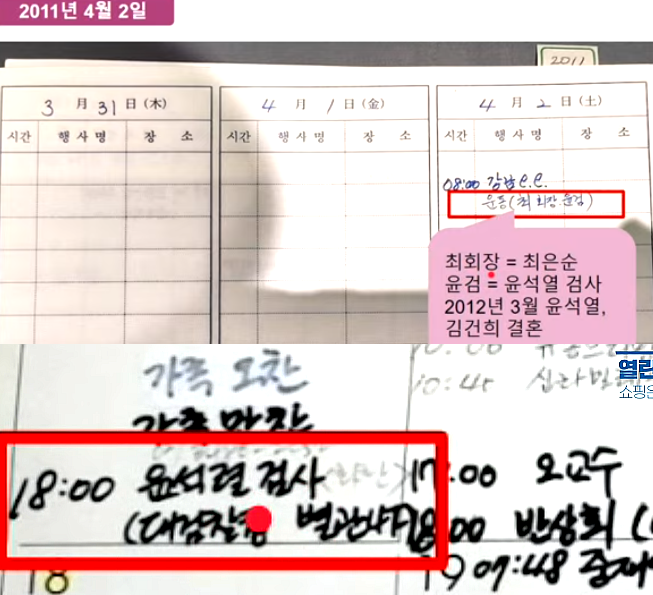 2011년 4월 2일
2011
3 월 31 일 (木)
4 월 1 일 (金)
4 월 2 일 (土)
시간 행 사 명 장 소
시간 행 사 명 장 소
시간 행 사 명 장 소
08:00 강남C.C.
운동(최 회장.윤검)
최회장 = 최은순
윤검 = 윤석열 검사
2012년 3월 윤석열,
김건희 결혼
가족 오찬
가족 만찬
18:00 윤석렬 검사
(대검찰청 별관
18
10:45
쇼핑
:00 오교수
18:00 반상회 (
19 07:48